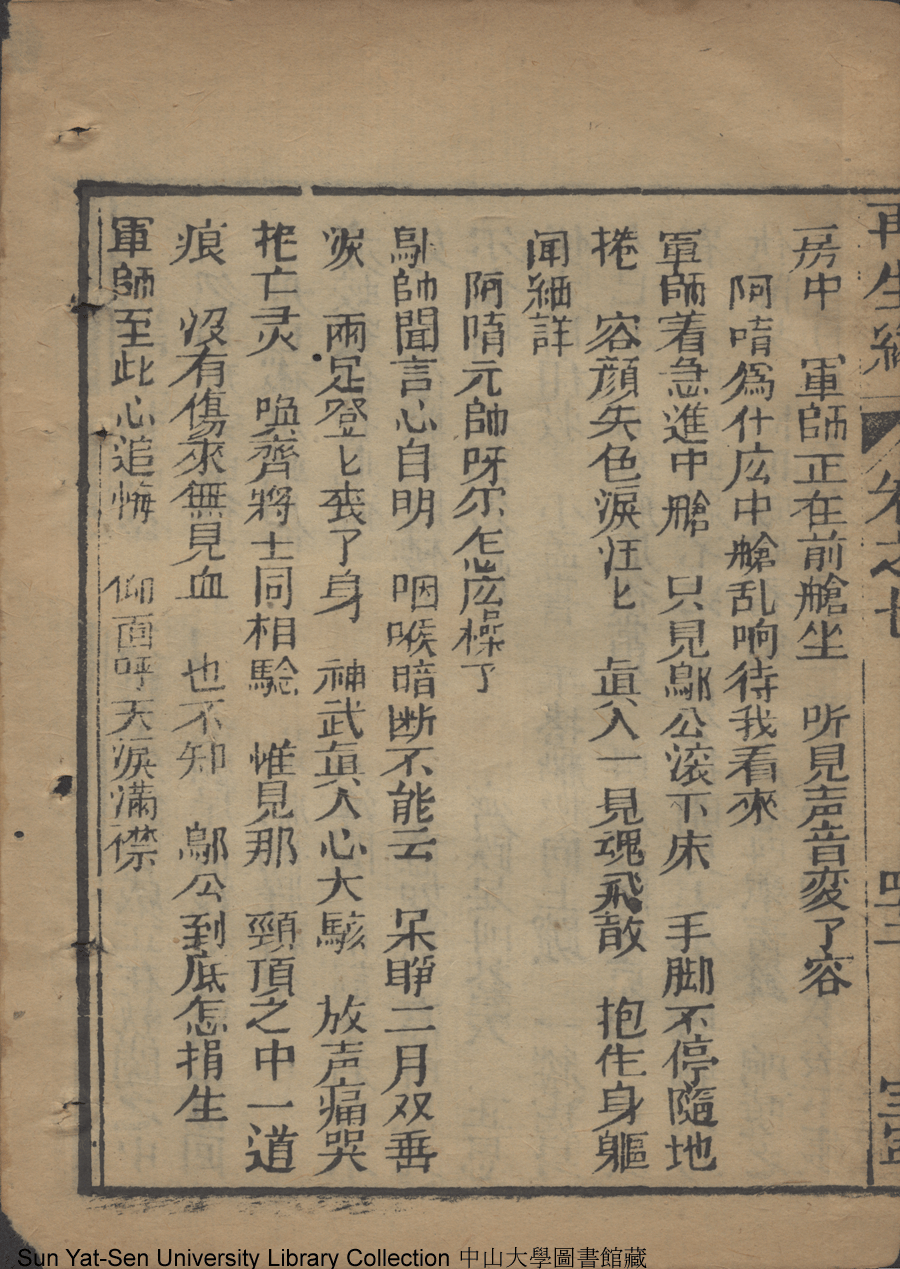 再生緣 卷之七
房中 軍師正在前艙坐 听見声音変了容
阿唷爲什庅中艙乱响待我看來
軍師着急進中艙 只見鄔公滚下床 手脚不停隨地
捲 容顔失色淚汪匕 眞人一見魂飛散 抱住身軀
闻細詳
阿唷元帥呀尔怎庅樣了
鄔帥聞言心自明 咽喉暗断不能云 呆睜二月双垂
淚 兩足登匕丧了身 神武眞人心大駭 放声痛哭
抱亡灵 喚齊將士同相驗 惟見那 頸頂之中一道
痕 沒有傷來無見血 也不知 鄔公到底怎捐生
軍師至此心追悔 仰面呼天淚滿襟
Sun Yat-Sen University Library Collection 中山大學圖書館藏